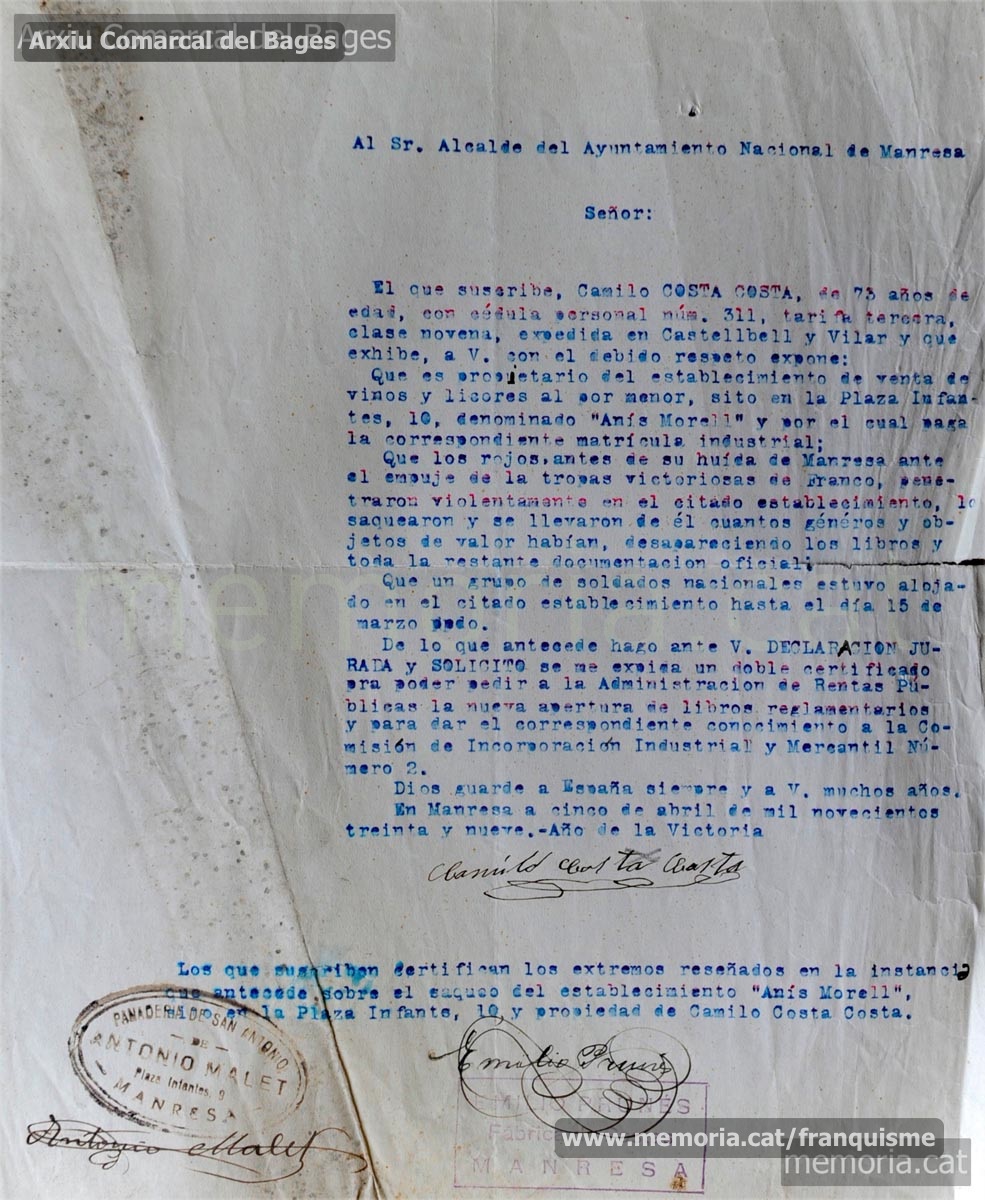 Arxiu Comarcal del Bages
Al Sr. Alcalde del Ayuntamiento Nacional de Manresa
Señor:
El que suscribe, Camilo COSTA COSTA, de 73 años de
edad, con cédula personal núm. 311, tarifa tercera,
clase novena, expedida en Castellbell y Vilar y que
exhibe, a V. con el debido respeto expone:
Que es propietario del establecimiento de venta de
vinos y licores al por menor, sito en la Plaza Infan-
tes, 10, denominado "Anís Morell" y por el cual paga
la correspondiente matrícula industrial;
Que los rojos,antes de su huída de Manresa ante
el empuje de la tropas victoriosas de Franco, pene-
traron violentamente en el citado establecimiento, lo
saquearon y se llevaron de él cuantos géneros y ob-
jetos de valor habían, desapareciendo los libros y
toda la restante documentacion oficial;
Que un grupo de soldados nacionales estuvo aloja-
do en el citado establecimiento hasta el día 15 de
marzo ppdo.
De lo que antecede hago ante V. DECLARACION JU-
RADA y SOLICITO se me expida un doble certificado
pra poder pedir a la Administracion de Rentas Pú-
blicas la nueva apertura de libros reglamentarios
y para dar el correspondiente conocimiento a la Co-
misión de Incorporación Industrial y Mercantil Nú-
mero 2.
Dios guarde a España siempre y a V. muchos años.
En Manresa a cinco de abril de mil novecientos
treinta y nueve.-Año de la Victoria
Camilo Costa Costa
Los que suscriben certifican los extremos reseñados en la instancia
que antecede sobre el saqueo del establecimiento "Anís Morell",
sito en la Plaza Infants, 10 y propiedad de Camilo Costa Costa.
PANADERIA DE SAN ANTONIO
- DE -
ANTONIO MALET
Plaza Infantes, 9
MANRESA
Antonio Malet
Emilio Prunés
EMILIO PRUNÉS
MANRESA
www.memoria.cat/franquisme
memoria.cat